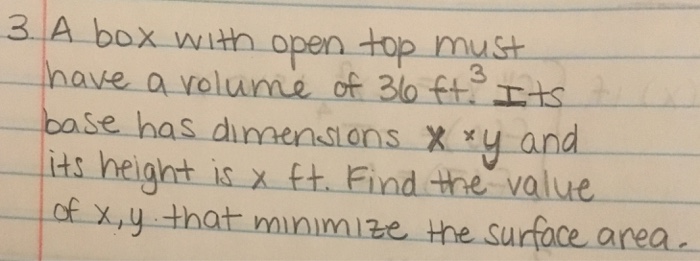 3. A box with open top must
have a volume of 36 ft.³ Its
base has dimensions x × y and
its height is x ft. Find the value
of x, y that minimize the surface area.